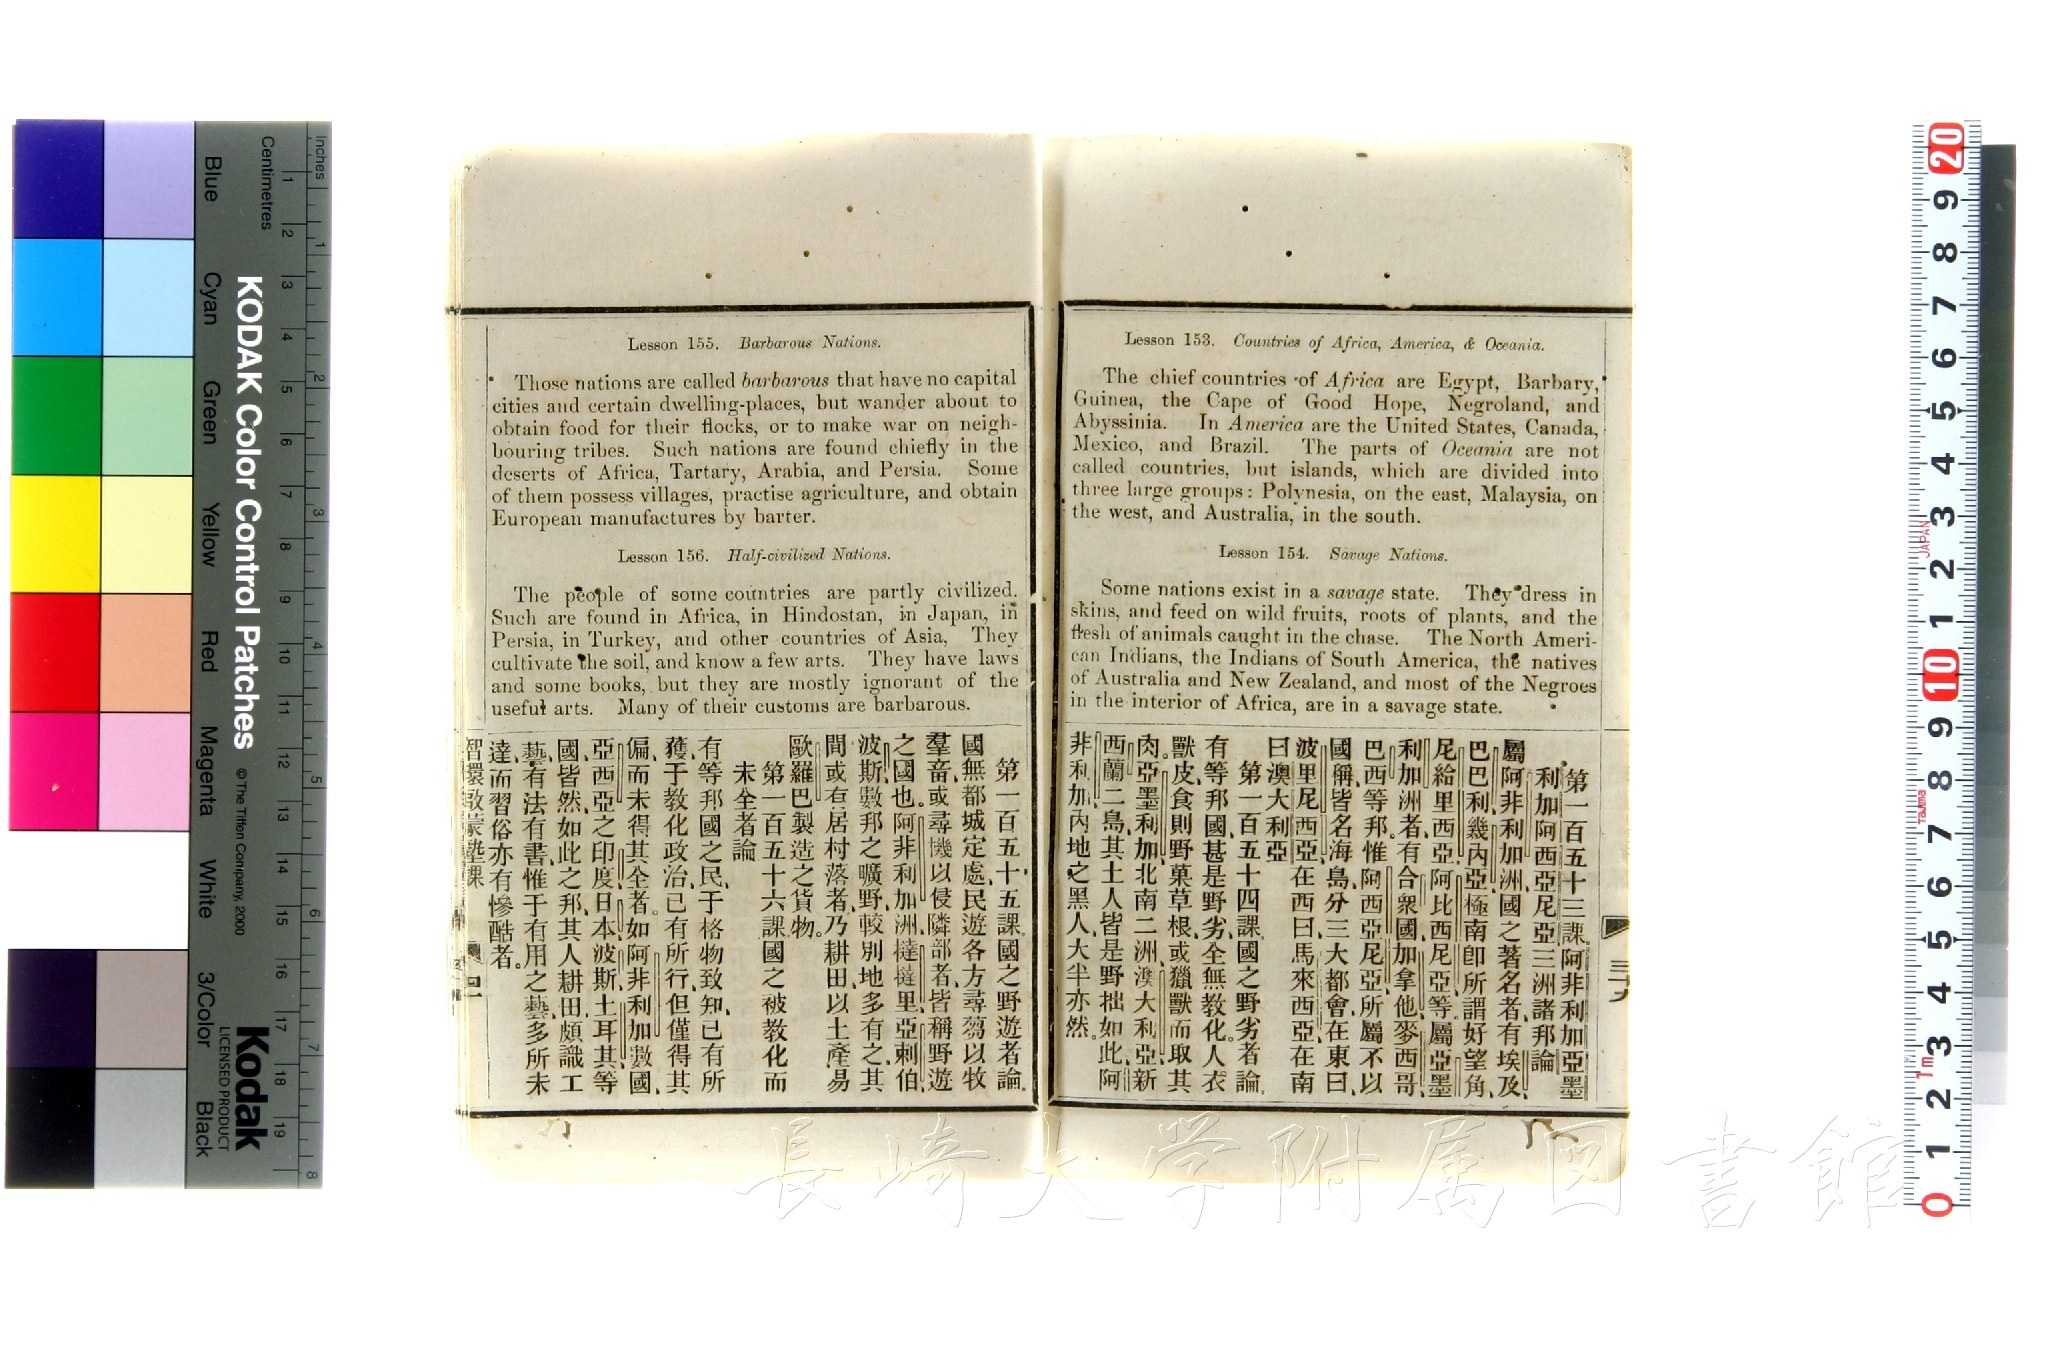 Lesson 153. Countries of Africa, America, & Oceania.
The chief countries of Africa are Egypt, Barbary,
Guinea, the Cape of Good Hope, Negroland, and
Abyssinia. In America are the United States, Canada,
Mexico, and Brazil. The parts of Oceania are not
called countries, but islands, which are divided into
three large groups: Polynesia, on the east, Malaysia, on
the west, and Australia, in the south.
Lesson 154. Savage Nations.
Some nations exist in a savage state. They dress in
skins, and feed on wild fruits, roots of plants, and the
flesh of animals caught in the chase. The North Ameri-
can Indians, the Indians of South America, the natives
of Australia and New Zealand, and most of the Negroes
in the interior of Africa, are in a savage state.
第一百五十三課阿非利加亞墨
利加阿西亞尼亞三洲諸邦論
屬阿非利加洲國之著名者有埃及、
巴巴利、幾內亞、極南卽所謂好望角、
尼給里西亞、阿比西尼亞等、屬亞墨
利加洲者、有合衆國、加拿他、麥西哥、
巴西等邦、惟阿西亞尼亞所屬、不以
國稱、皆名海島、分三大都會、在東曰、
波里尼西亞、在西曰、馬來西亞、在南
曰澳大利亞
第一百五十四課。國之野劣者論。
有等邦國、甚是野劣、全無教化。人衣
獸皮、食則野菓草根、或獵獸而取其
肉。亞墨利加北南二洲、澳大利亞、新
西蘭二島、其土人皆是野拙如此、阿
非利加、內地之黑人、大半亦然。
Lesson 155. Barbarous Nations.
Those nations are called barbarous that have no capital
cities and certain dwelling-places, but wander about to
obtain food for their flocks, or to make war on neigh-
bouring tribes. Such nations are found chiefly in the
deserts of Africa, Tartary, Arabia, and Persia. Some
of them possess villages, practise agriculture, and obtain
European manufactures by barter.
Lesson 156. Half-civilized Nations.
The people of some countries are partly civilized.
Such are found in Africa, in Hindostan, in Japan, in
Persia, in Turkey, and other countries of Asia, They
cultivate the soil, and know a few arts. They have laws
and some books, but they are mostly ignorant of the
useful arts. Many of their customs are barbarous.
第一百五十五課。國之野遊者論。
國無都城定處、民遊各方尋蒭以牧
羣畜、或尋機以侵隣部者、皆稱野遊
之國也。阿非利加洲、撻撻里、亞剌伯、
波斯、數邦之曠野、較別地多有之、其
間或有居村落者、乃耕田、以土產易
歐羅巴製造之貨物。
第一百五十六課。國之被教化而
未全者論
有等邦國之民、于格物致知、已有所
獲、于教化政治、已有所行、但僅得其
偏、而未得其全者。如阿非利加數國、
亞西亞之印度、日本、波斯、土耳其等
國、皆然、如此之邦、其人耕田、頗識工
藝、有法有書、惟于有用之藝、多所未
達、而習俗亦有慘酷者。
智環啟蒙塾課
KODAK Color Control Patches
© The Tiffen Company, 2000
Kodak
LICENSED PRODUCT
Inches
1 2 3 4 5 6 7 8
Centimetres
1 2 3 4 5 6 7 8 9 10 11 12 13 14 15 16 17 18 19
Blue Cyan Green Yellow Red Magenta White 3/Color Black
20 9 8 7 6 5 4 3 2 1 10 9 8 7 6 5 4 3 2 1 0
JAPAN
Tajima
長崎大学附属図書館